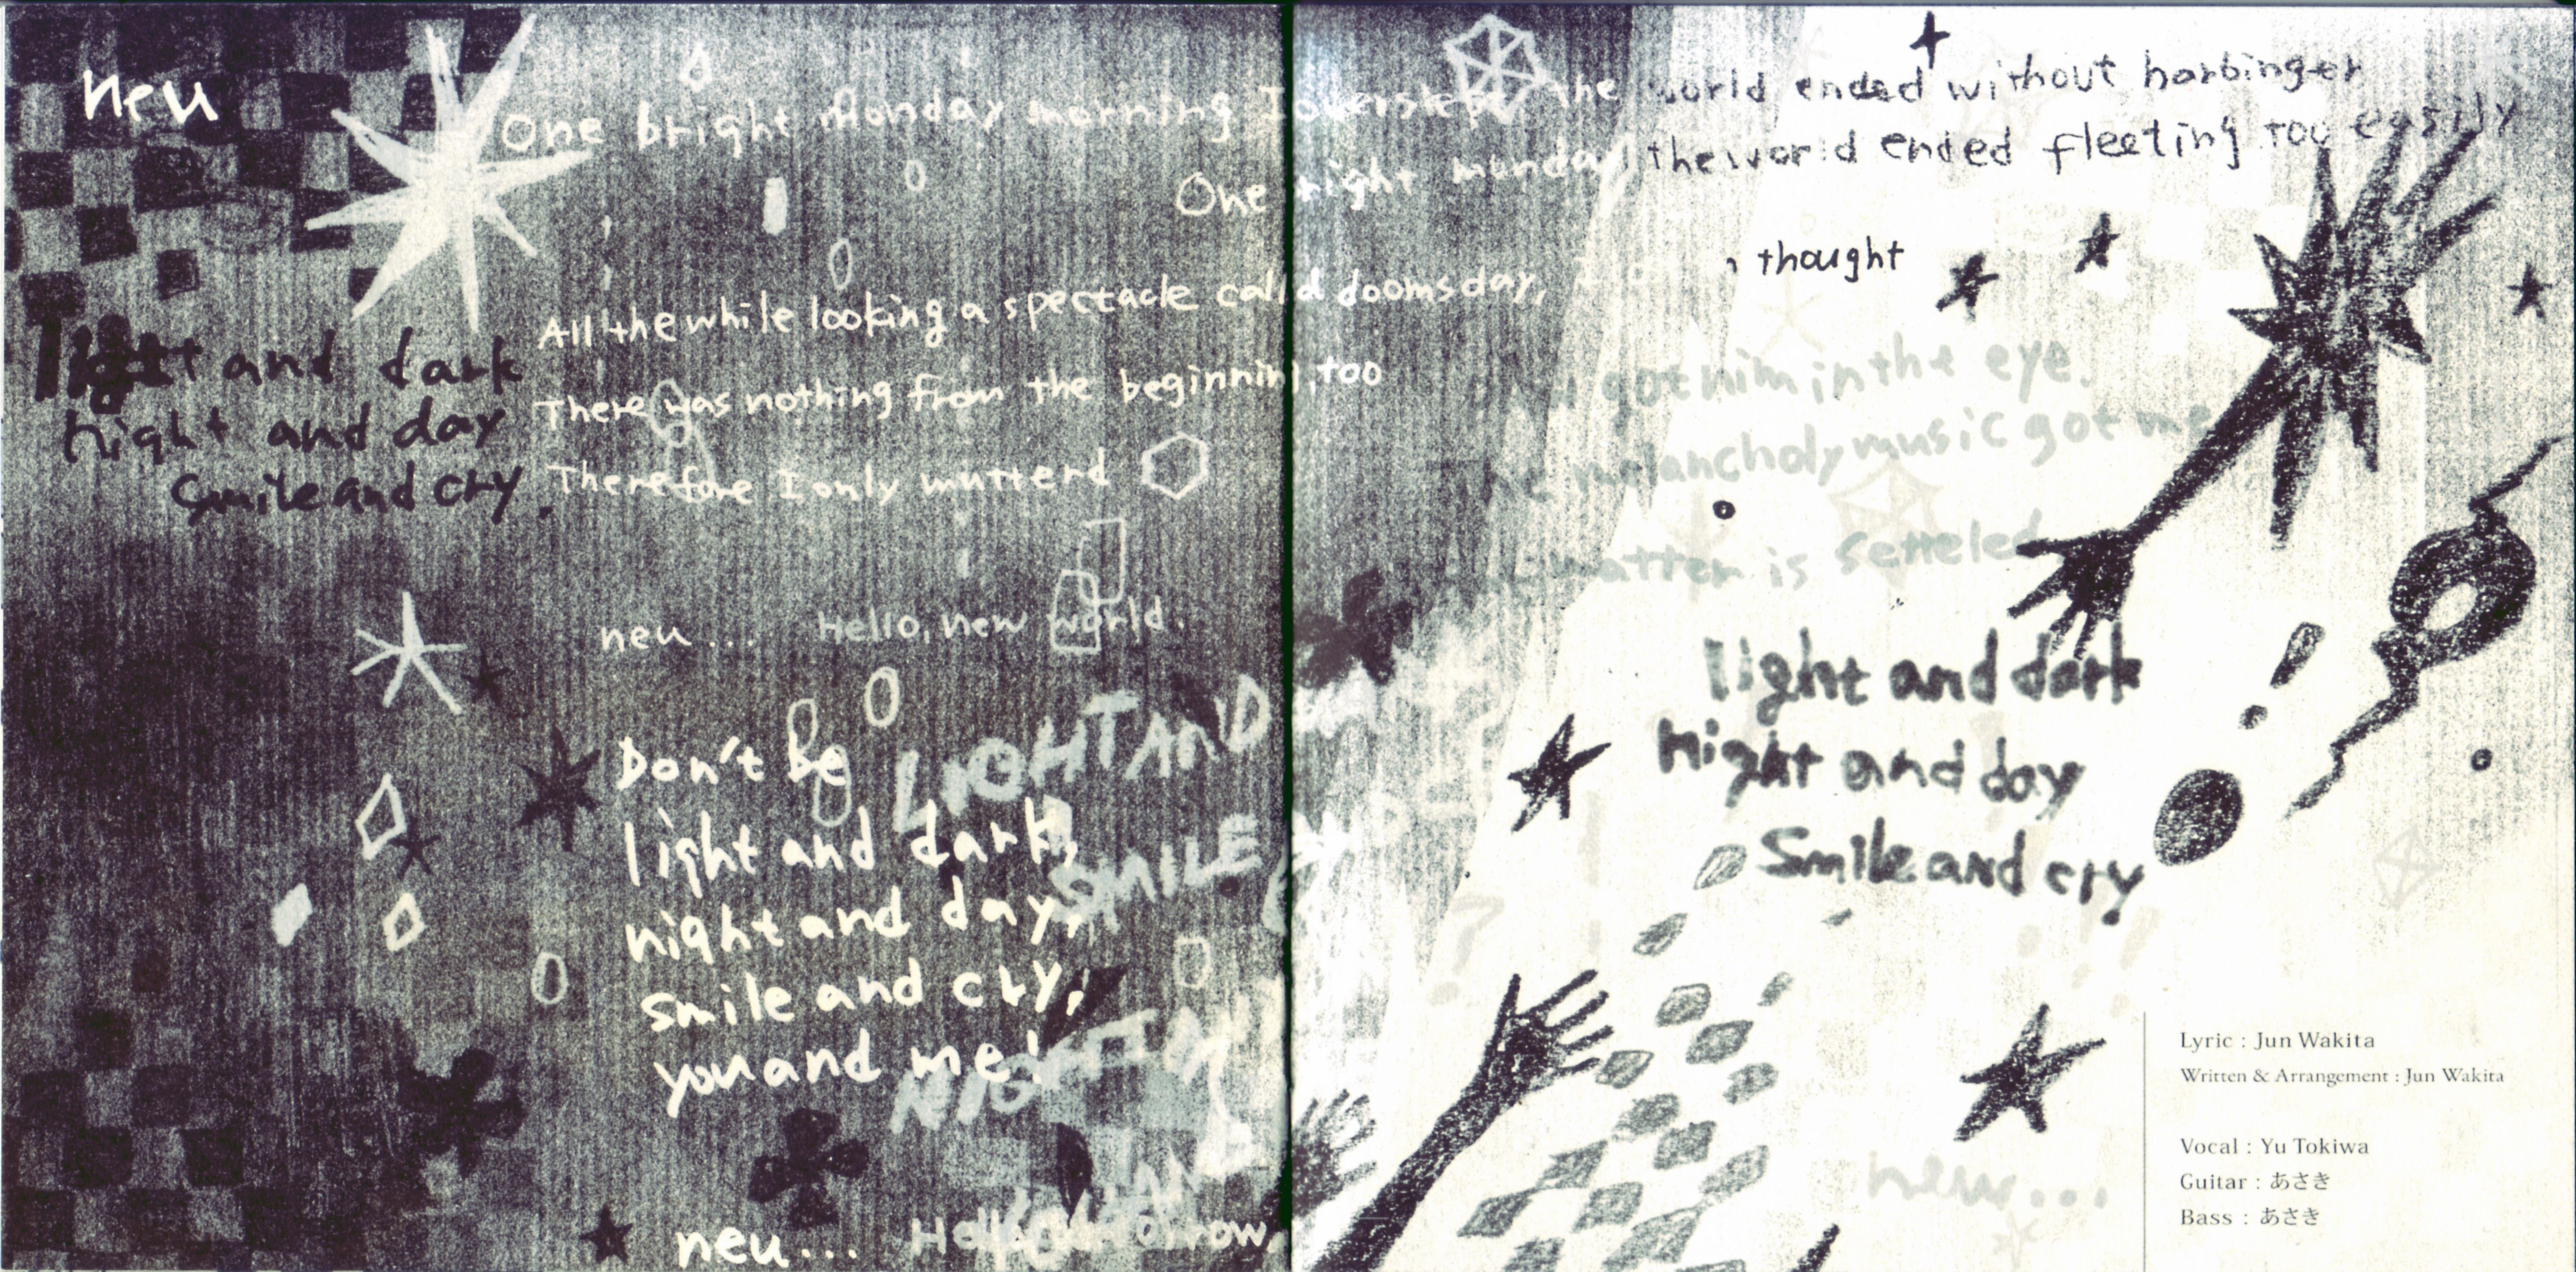 neu
One bright Monday morning I overslept, the world ended without harbinger
One night munday the world ended fleeting too easily
All the while looking a spectacle calld doomsday, I thought
There was nothing from the beginning, too
Therefore I only mutterd
neu... Hello, new world.
light and dark
night and day
smile and cry.
Don't be
light and dark,
night and day,
smile and cry,
you and me!
LIGHT AND
SMILE
NIGHT
neu...
got him in the eye.
melancholy music got me
matter is setteled
light and dark
night and day
Smile and cry
new...
Lyric : Jun Wakita
Written & Arrangement : Jun Wakita
Vocal : Yu Tokiwa
Guitar : あさき
Bass : あさき